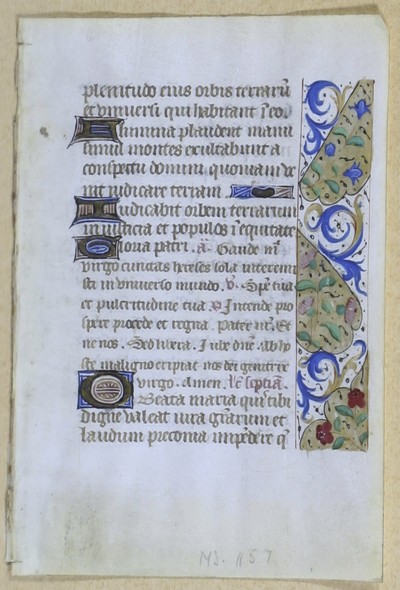 plenitudo eius orbis terrarũ
et vniuersi qui habitant ĩ eo.
Flumina plaudent manu
simul montes exultabunt a
conspectu domini quoniam ve
nit iudicare terram
Iudicabit orbem terrarum
in iusticia et populos ĩ equitate
Gloria patri. a. Gaude mᵃ
virgo cunctas hereses sola interemi
sti in vniuerso mundo. v. Spẽ tua
et pulcritudine tua. R Intende pro
spere procede et regna. Pater nr̃. Et
ne nos. Sed libera. Iube dne.
ste maligno eripiat nos dei genitrix
virgo. Amen. lẽ septiã.
O Beata maria quis tibi
digne valeat iura grãrum et
laudum preconia impẽdere q̃
MS. 157